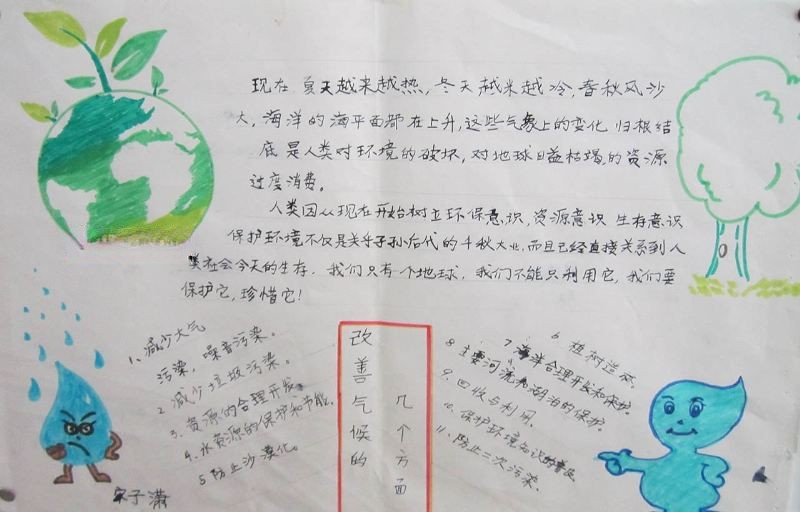 现在夏天越来越热,冬天越来越冷,春秋风沙
大,海洋的海平面都在上升,这些气象上的变化归根结
底是人类对环境的破坏,对地球日益枯竭的资源
过度消费。
人类因从现在开始树立环保意识,资源意识 生存意识
保护环境不仅是关乎子孙后代的千秋大业,而且已经直接关系到人
类社会今天的生存,我们只有一个地球,我们不能只利用它,我们要
保护它,珍惜它!
改善气候的
几个方面
1、减少大气
污染,噪音污染。
2 减少垃圾污染。
3.资源的合理开发。
4.水资源的保护和节能.
5 防止沙漠化。
6 植树造林。
7 海洋合理开发和保护。
8 主要河流和湖泊的保护。
9.回收与利用.
10.保护环境知识的普及
11.防止二次污染.
宋子潇